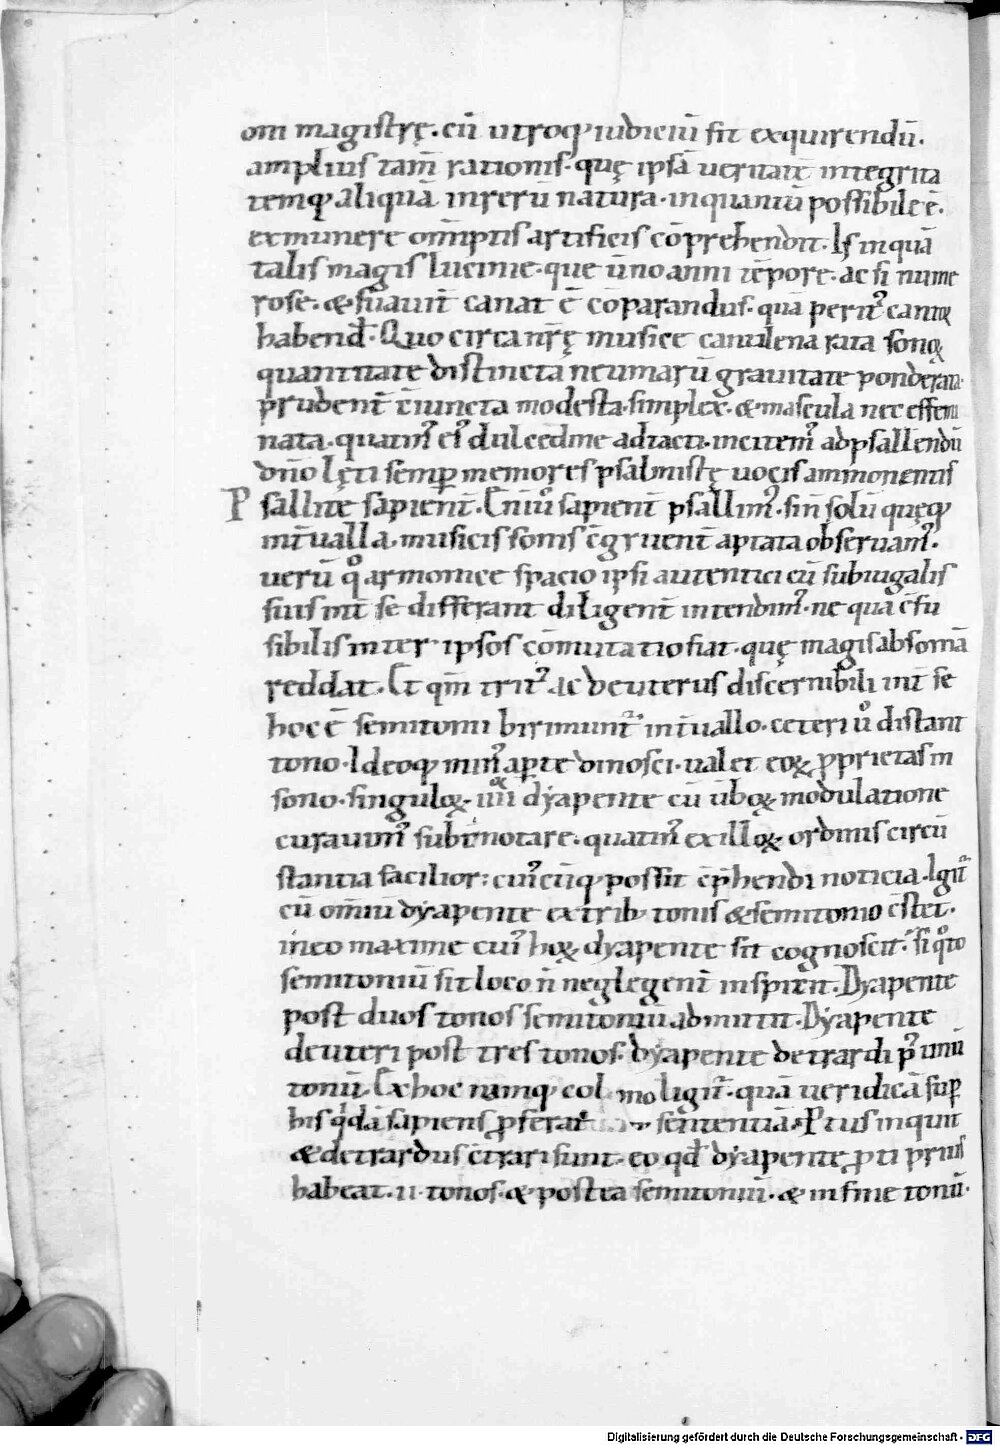 om magistrę. cū utroq; iudiciū sit exquirendū.
amplius tam̄ rationis. quę ipsā ueritatē integrita
temq; aliquā inrerū natura. inquantū possibile ē.
exmunere om̄iptis artificis cōprehendit. Is inquā
talis magis lucinię. que ūno anni tēpore. ac si nume
rose. & suauit̄ canat ē cōparandus. qua perit᷒ cantor
habend᷒. Quo circa nr̄ę musice cantilena rata sonoꝝ
quantitate distincta neumarū grauitate ponderata.
prudent̄ c̄iuncta modesta. simplex. & mascula nec effemi
nata. quatin᷒ ei᷒ dulcedine adtacti. incitem᷒ adpsallendū
dn̄o lęti semp̄ memores psalmistę uocis ammonentis
Psallite sapient̄. Cui᷒ sapient̄ psallim᷒. sin̄ solū quęq;
int̄ualla. musicis sonis c̄gruent̄ aptata obseruam᷒.
uerū qͦ armonice spacio ipsi autentici cū subiugalis
suis int̄ se differant diligent̄ intendim᷒. ne qua c̄fu
sibilis inter ipsos cōmutatio fiat. quę magis absonā
reddat. Et qm̄ trit᷒ ac deuterus discernibili int̄ se
hoc ē semitonii dirimunt᷒ int̄uallo. ceteri uͦ distant
tono. Ideoq; min᷒ aperte dinosci. ualet eoꝝ ꝓprietas in
sono. singuloꝝ. iiii dyapente cū ūboꝝ modulatione
curauim᷒ subt̄notare. quatin᷒ ex illoꝝ. ordinis circū
stantia facilior: cui᷒cūq; possit cp̄hendi noticia. Igit᷒
cū om̄iū dyapente extrib; tonis & semitonio c̄stet.
ineo maxime cui᷒ hoꝝ dyapente sit cognoscit᷒. si qͦto
semitoniū sit loco n̄ neglegent̄ inspicit᷒. Dyapente
post duos tonos semitoniū admittit. Dyapente
deuteri post tres tonos. dyapente detrardi p᷒ unū
tonū. Ex hoc namq; colmo ligit᷒. quā ueridicā sup̄
his qͥdā sapiens ꝓferat sententiā. Ptus inquit
& detrardus c̄trari sunt. eo qd̄ dyapente ꝓti prius
habeat. ii. tonos. & postea semitoniū. & infine tonū.
Digitalisierung gefördert durch die Deutsche Forschungsgemeinschaft - DFG